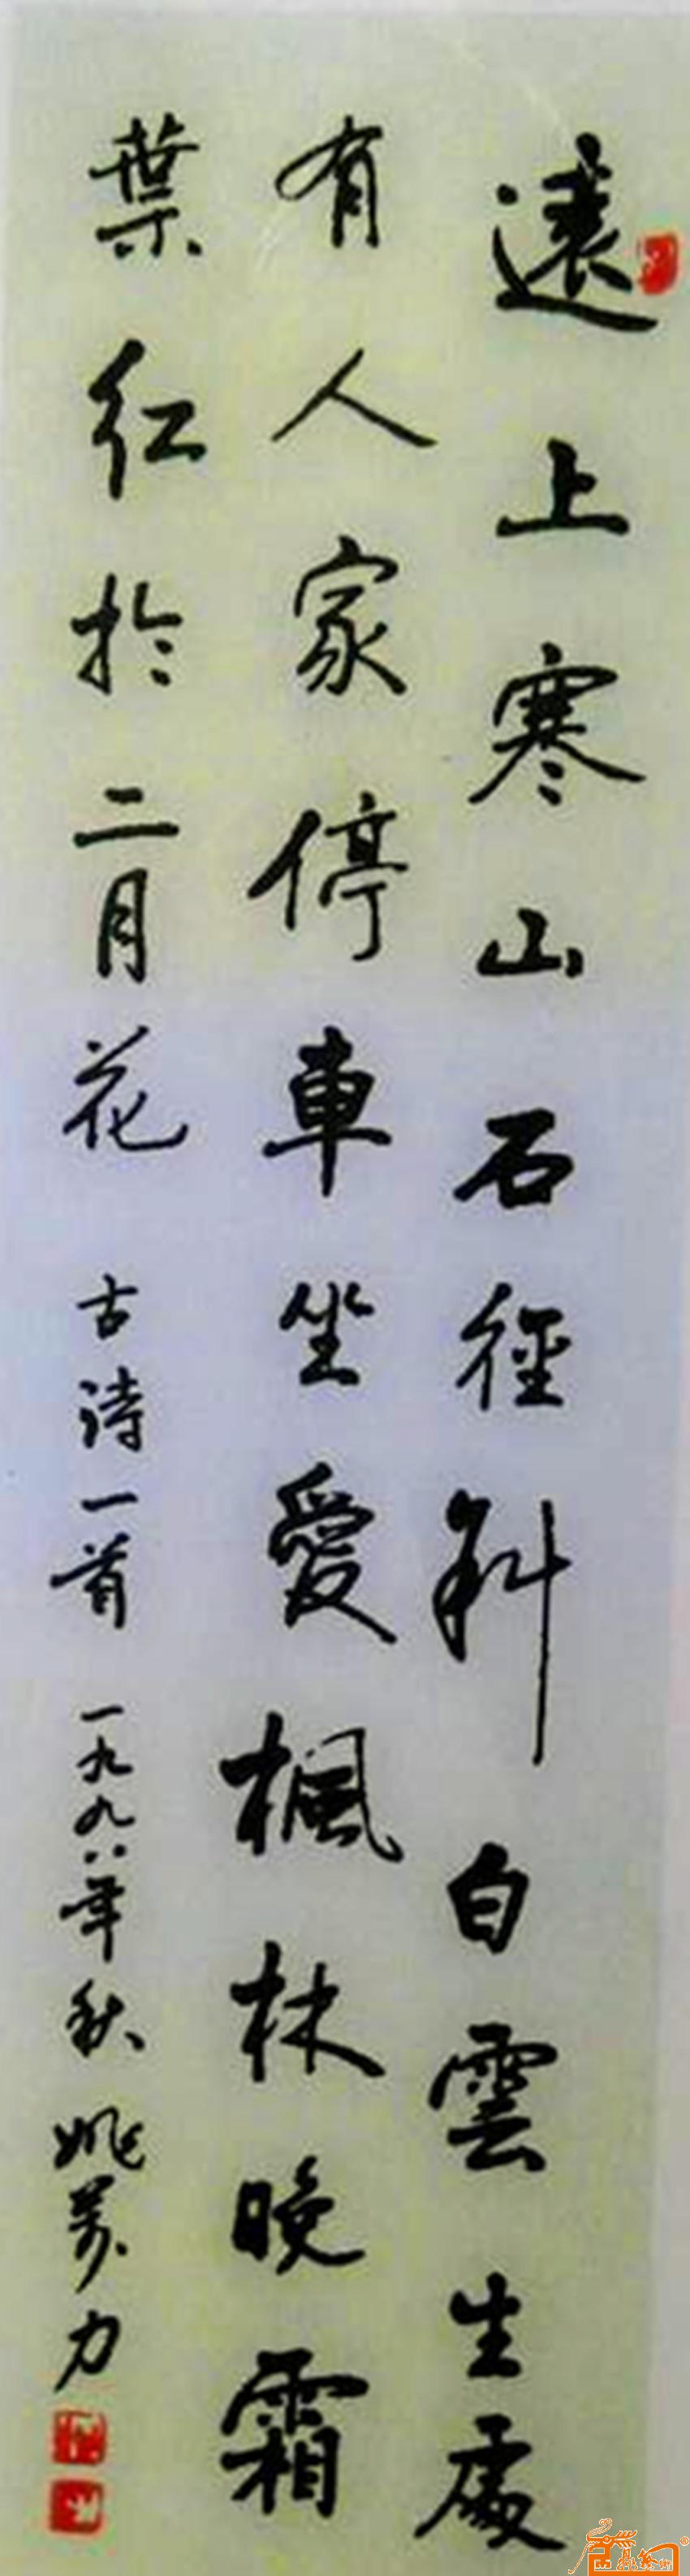 遠上寒山石徑斜白雲生處
有人家停車坐愛楓林晚霜
葉紅於二月花 古诗一首 一九九八年秋 姚万力